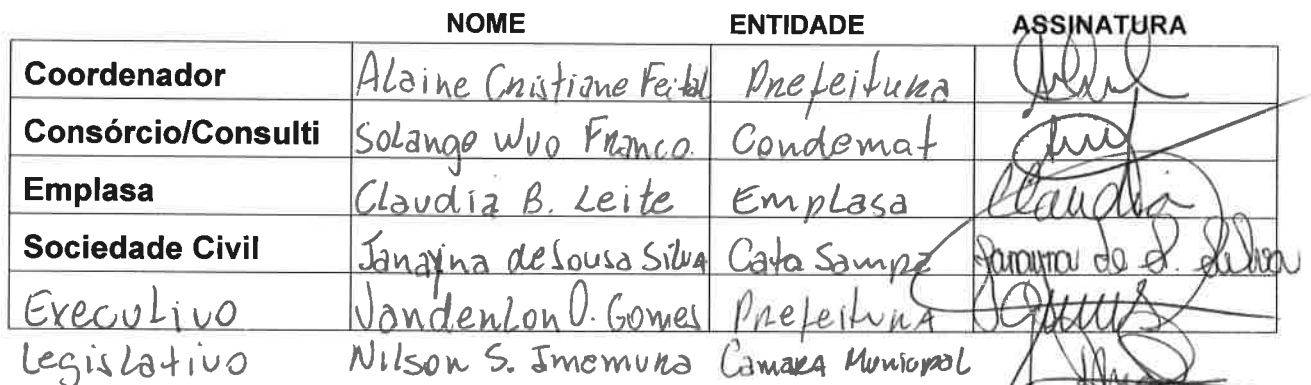 NOME ENTIDADE ASSINATURA
Coordenador Alaine Cristiane Feital Prefeitura
Consórcio/Consulti Solange Wuo Franco. Condemat
Emplasa Claudia B. Leite Emplasa Claudia
Sociedade Civil Janayna de Sousa Silva Cata Sampa Janayna de S. Silva
Executivo Vanderlon O. Gomes Prefeitura
Legislativo Nilson S. Imemura Camara Municipal